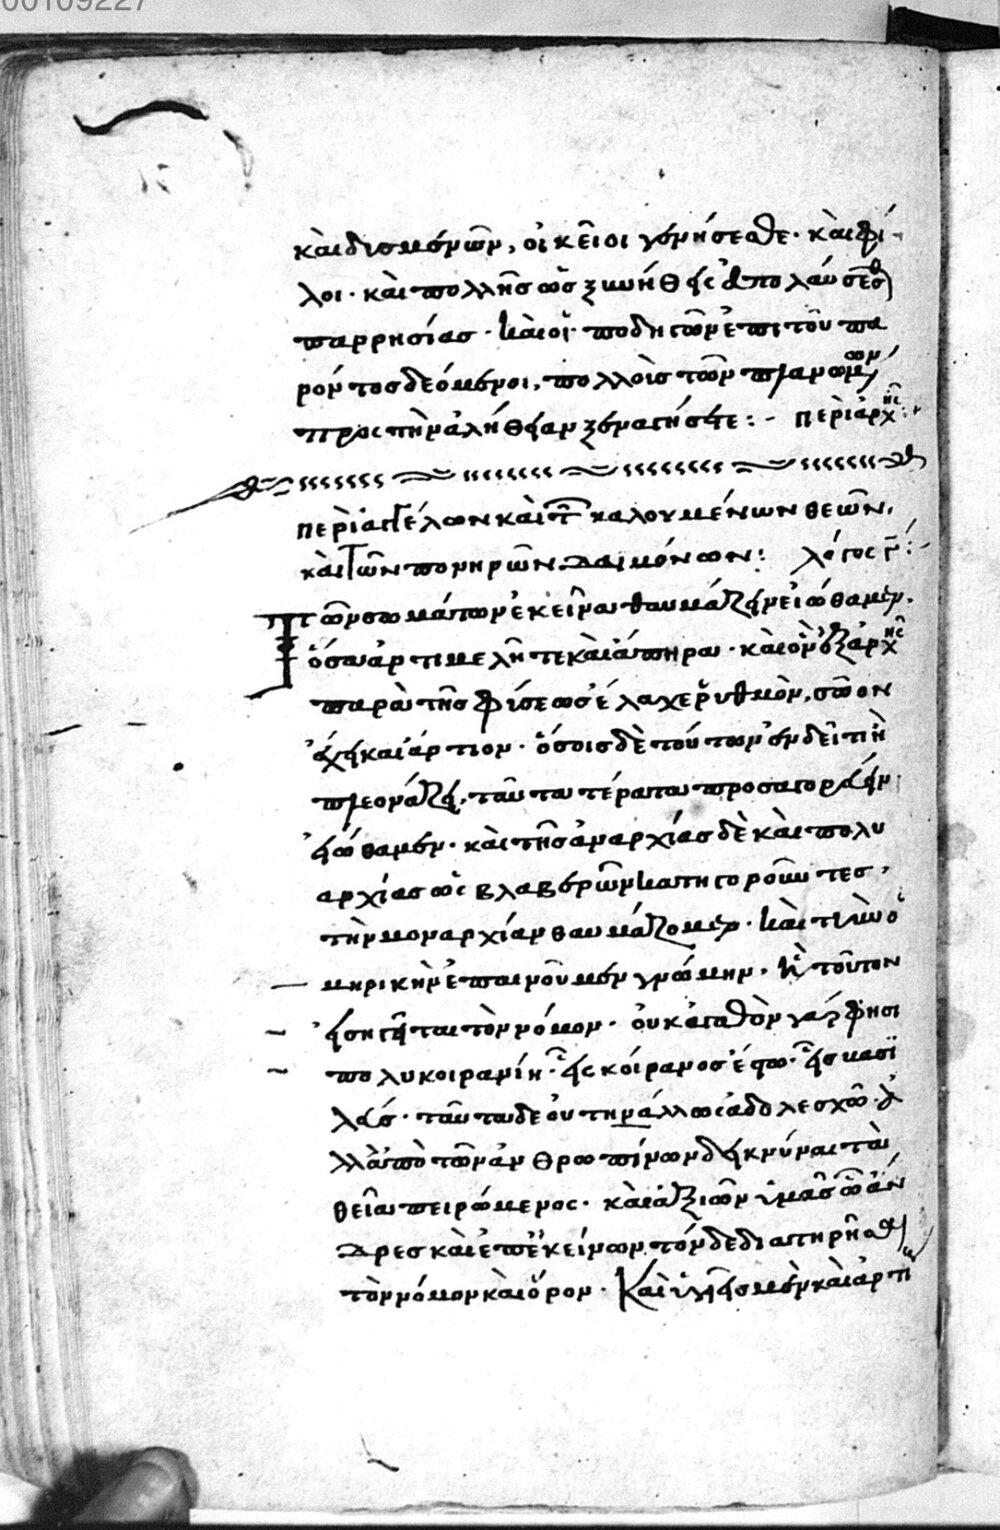 00109227
καὶ δυσμενῶν, οἰκεῖοι γενήσεσθε· καὶ φί
λοι· καὶ πολλῆς ὡς ξυνήθεις ἀπολαύσεσθ
παρρησίας· καὶ οἱ ποδηγῶν ἐπὶ τοῦ πα
ρόντος δεόμενοι, πολλοῖς τῶν πλανωμένων
πρὸς τὴν ἀλήθειαν ξεναγήσετε:- περὶ ἀρχῆς:
περὶ ἀγγέλων καὶ τ καλουμένων θεῶν,
καὶ τῶν πονηρῶν δαιμόνων: λόγος γ:
τῶν σωμάτων ἐκεῖνα θαυμάζειν εἰώθαμεν.
ὅσα ἀρτιμελῆ τε καὶ ἄπηρα· καὶ ὃν ἐξ ἀρχῆς
παρὰ τῆς φύσεως ἔλαχε ῥυθμὸν, σῶον
ἔχει καὶ ἄρτιον· ὅσοις δὲ τούτων ἐνδεῖ τι ἢ
πλεονάζει, ταῦτα τέρατα προσαγορεύειν
εἰώθαμεν· καὶ τῆς ἀναρχίας δὲ καὶ πολυ
αρχίας ὡς βλαβερῶν κατηγοροῦντες,
τὴν μοναρχίαν θαυμάζομεν· καὶ τὴν ὁ
μηρικὴν ἐπαινοῦμεν γνώμην. ἣ τοῦτον
εἰσηγεῖται τὸν νόμον· οὐκ ἀγαθὸν γάρ φησι
πολυκοιρανίη· εἷς κοίρανος ἔστω· εἷς βασι
λεύς· ταῦτα δε οὐ τηνάλλως ἀδολεσχῶ· ἀ
λλ' ἀπὸ τῶν ἀνθρωπίνων δεικνύναι τὰ
θεῖα πειρώμενος· καὶ ἀξιῶν ὑμᾶς ὦ ἄν
δρες καὶ ἐπ' ἐκείνων τόνδε διατηρῆσαι
τὸν νόμον καὶ ὅρον· Καὶ ὑμεῖς μὲν καὶ ἀρτι